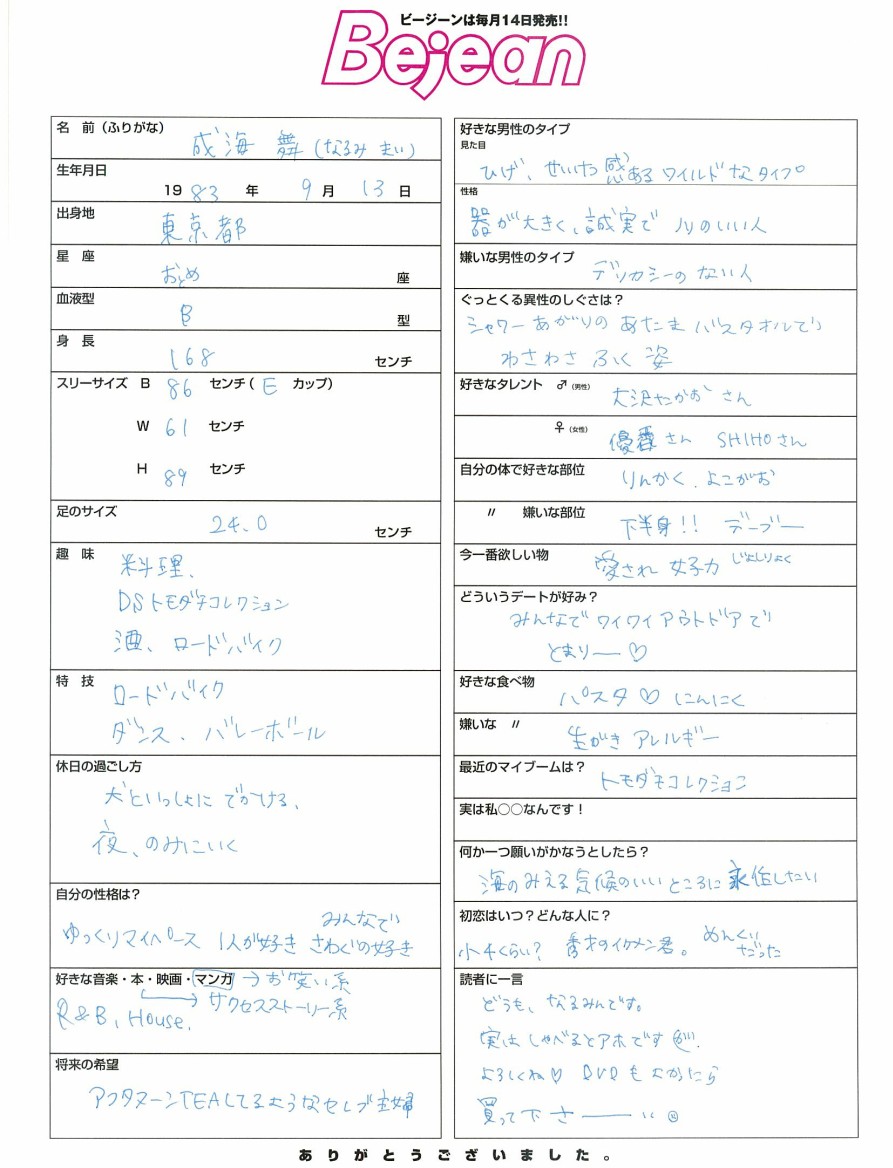 ビージーンは毎月14日発売!!
Bejean
名 前(ふりがな)
成海 舞(なるみ まい)
生年月日
1983年 9月 13日
出身地
東京都
星 座
おとめ 座
血液型
B 型
身 長
168 センチ
スリーサイズ B 86 センチ( E カップ)
W 61 センチ
H 89 センチ
足のサイズ
24.0 センチ
趣 味
料理、
DSトモダチコレクション
酒、ロードバイク
特 技
ロードバイク
ダンス、バレーボール
休日の過ごし方
犬といっしょにでかける、
夜、のみにいく
自分の性格は?
みんなで
ゆっくりマイペース 1人が好き さわぐの好き
好きな音楽・本・映画・マンガ → お笑い系
サクセスストーリー系
R&B、House.
将来の希望
アフタヌーンTEAしてるようなセレブ主婦
好きな男性のタイプ
見た目
ひげ、せいけつ感ある ワイルドなタイプ。
性格
器が大きく、誠実で ノリのいい人
嫌いな男性のタイプ
デリカシーのない人
ぐっとくる異性のしぐさは?
シャワーあがりの あたま バスタオルで
わさわさ ふく 姿
好きなタレント ♂(男性) 大沢たかおさん
♀(女性) 優香さん SHIHOさん
自分の体で好きな部位
りんかく、よこがお
〃 嫌いな部位
下半身!! デーブー
今一番欲しい物
愛され 女子力 じょしりょく
どういうデートが好み?
みんなでワイワイアウトドアで
とまりー♡
好きな食べ物
パスタ♡ にんにく
嫌いな 〃
生がき アレルギー
最近のマイブームは?
トモダチコレクション
実は私○○なんです!
何か一つ願いがかなうとしたら?
海のみえる気候のいいところに永住したい
初恋はいつ?どんな人に?
小4くらい? 秀才のイケメン君。 めんくい
だった
読者に一言
どうも、なるみんです。
実はしゃべるとアホです
よろしくね♡ DVDもよかったら
買って下さーーい
ありがとうございました。